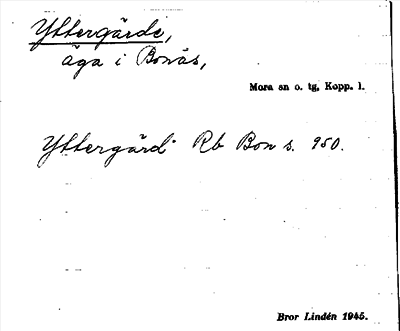 Yttergärde,
äga i Bonäs,
Mora sn o. tg, Kopp. l.
Yttergärd Rb Bon s. 950.
Bror Lindén 1945.